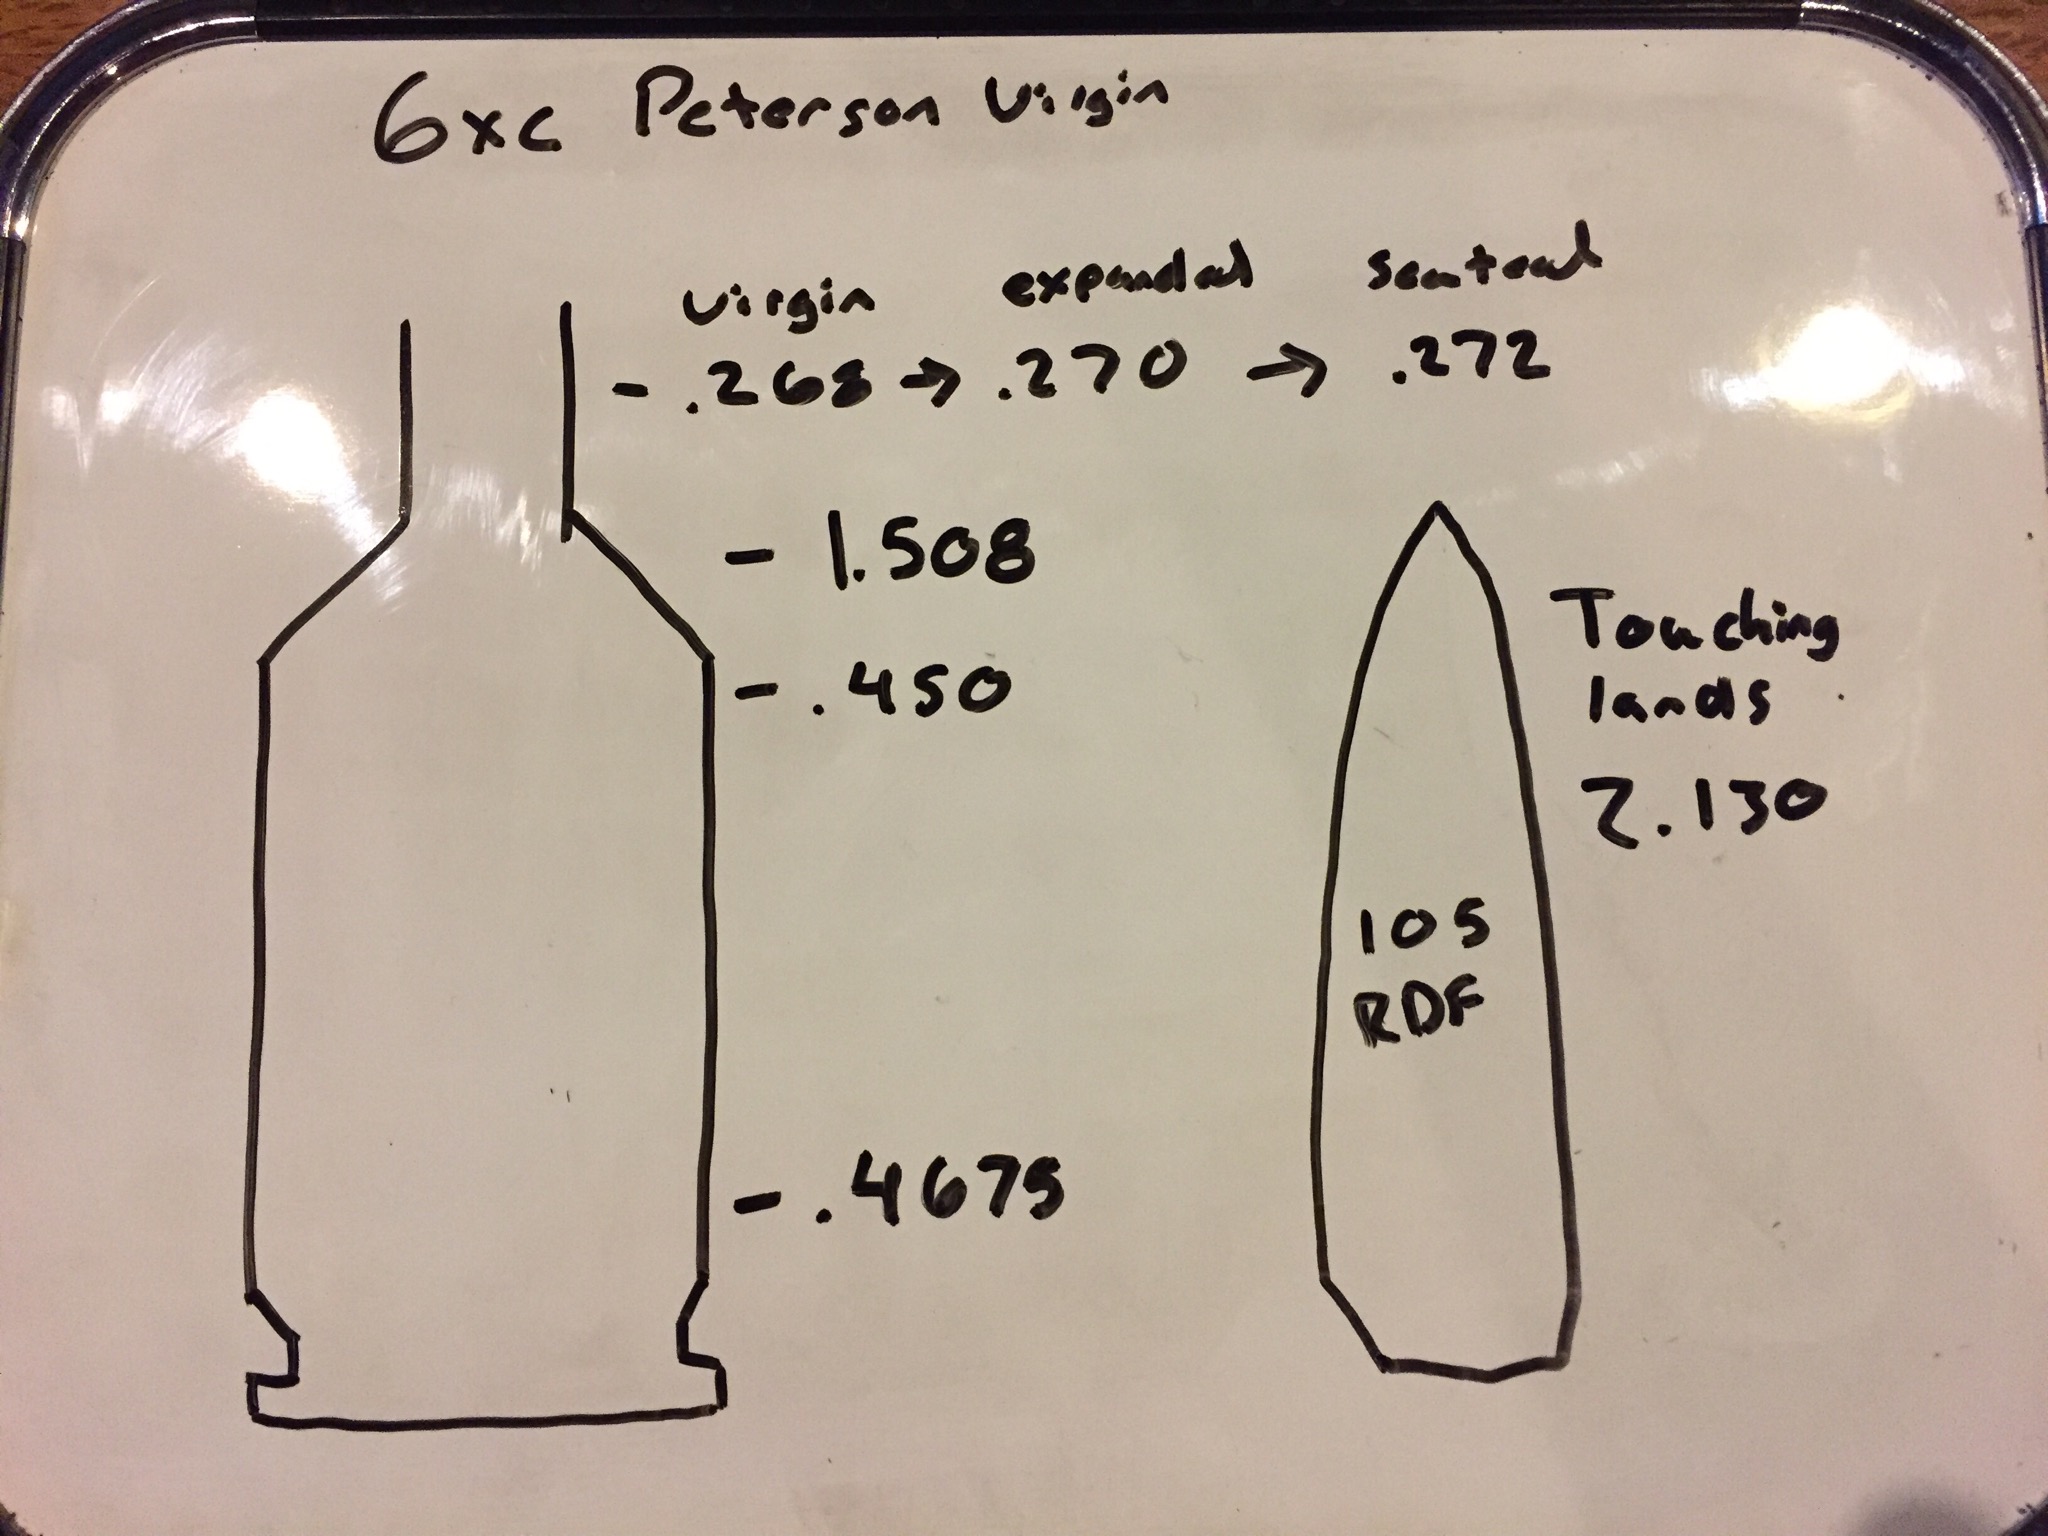 6xc Peterson Virgin
Virgin expanded Seated
- .268 → .270 → .272
- 1.508
- .450
Touching
lands
2.130
105
RDF
- .4675